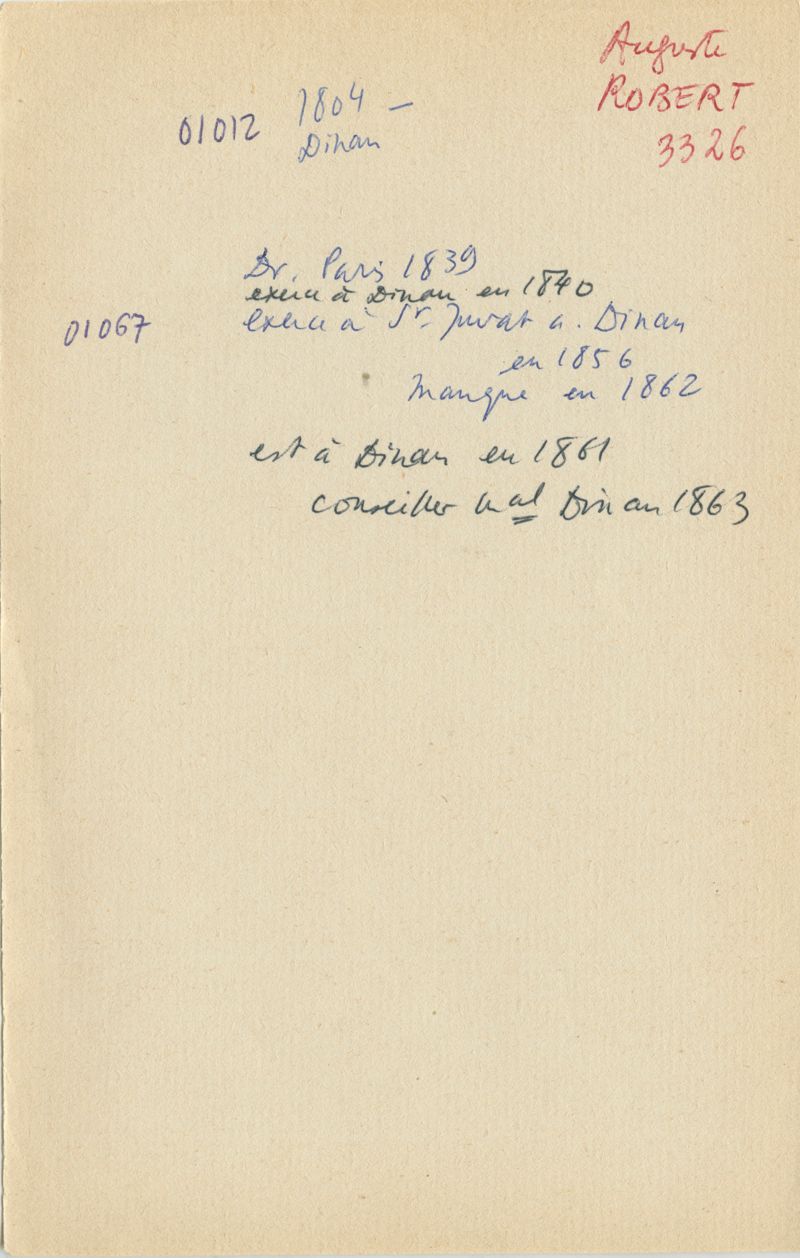 Auguste
ROBERT
3326
01012 1804 –
Dinan
Dr. Paris 1839
exerce à Dinan en 1840
01067 exerce à St. Juvat a. Dinan
en 1856
manque en 1862
est à Dinan en 1861
conseiller mal Dinan 1863